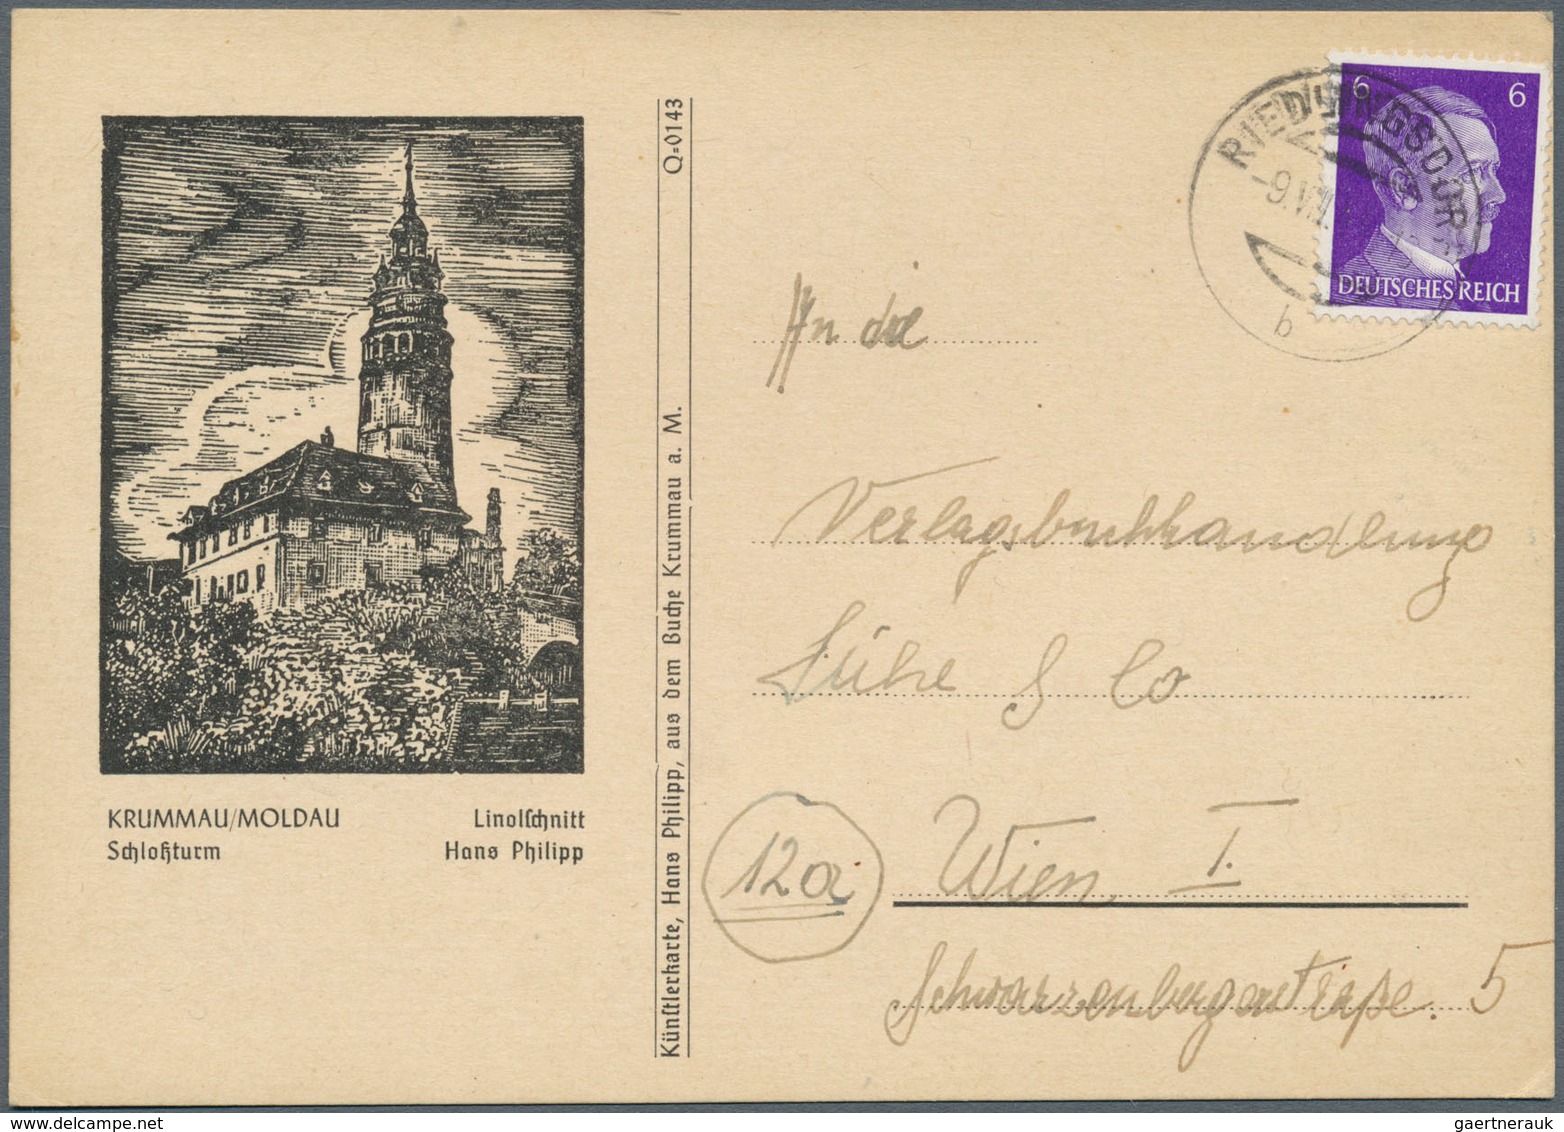 KRUMMAU/MOLDAU
Schloßturm
Linolschnitt
Hans Philipp
Künstlerkarte, Hans Philipp, aus dem Buche Krummau a. M.
Q=0143
6 6
DEUTSCHES REICH
RIEDLINGSDORF
-9.VII.
b
An die
Verlagsbuchhandlung
Lühe & Co
12a
Wien I.
Schwarzenbergerstraße. 5
gaertnerauk